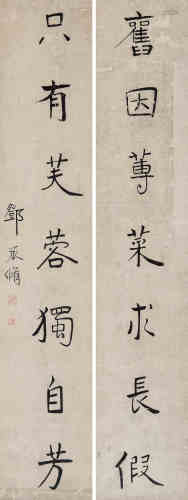 舊因蓴菜求長假
只有芙蓉獨自芳
鄧承脩